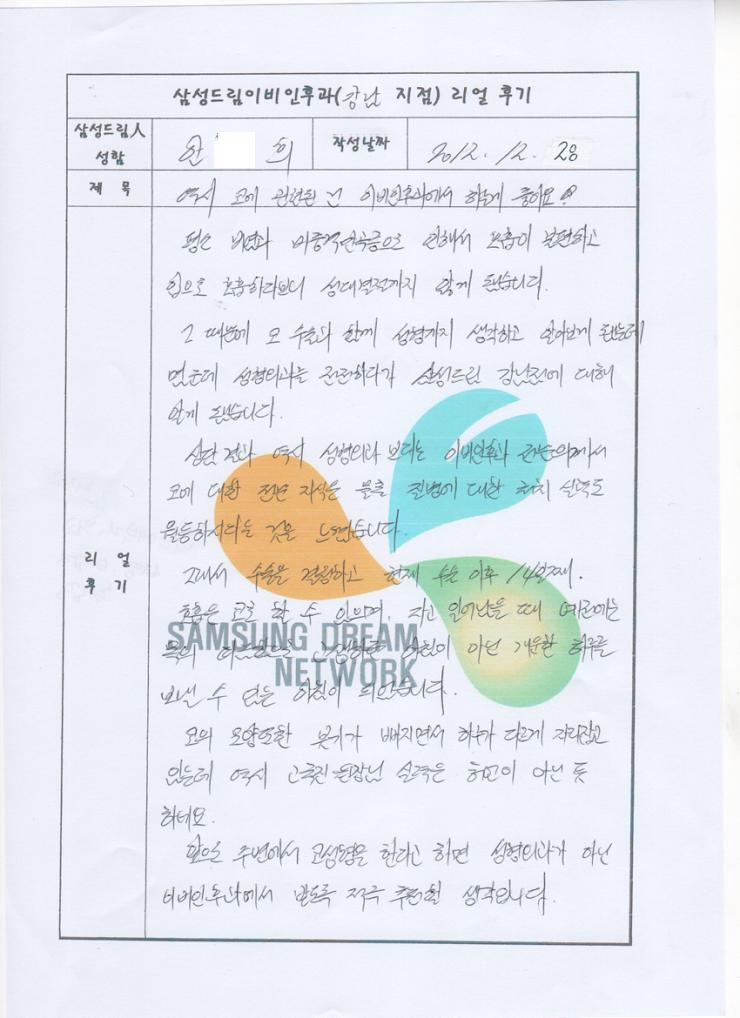 삼성드림이비인후과(강남 지점) 리얼 후기
삼성드림人 성함
안 희
작성날짜
2012. 12. 28
제 목
역시 코에 관련된 건 이비인후과에서 하는게 좋아요?
리 얼 후 기
평소 비염과 비중격만곡증으로 인해서 호흡이 불편하고
입으로 호흡하다보니 성대결절까지 앓게 됐습니다.
그 때문에 코 수술과 함께 성형까지 생각하고 알아보게 됐는데
성형외과는 전전하다가 삼성드림 강남점에 대해
알게 됐습니다.
상담 결과 역시 성형외과 보다는 이비인후과 전문의께서
코에 대한 전문 지식은 물론 질병에 대한 처치 실력도
월등하시다는 것을 느꼈습니다.
그래서 수술을 결정하고 현재 수술 이후 14일째.
호흡은 코로 할 수 있으며, 자고 일어났을 때 예전에는
목의 아침이 아닌 개운한 하루를
보낼 수 있는 아침이 되었습니다.
SAMSUNG DREAM
NETWORK
코의 모양또한 붓기가 빠지면서 하루가 다르게 자리잡고
있는데 역시 원장님 실력은 허명이 아닌 듯
하네요.
앞으로 주변에서 코성형을 한다고 하면 성형외과가 아닌
이비인후과에서 받도록 적극 추천할 생각입니다.